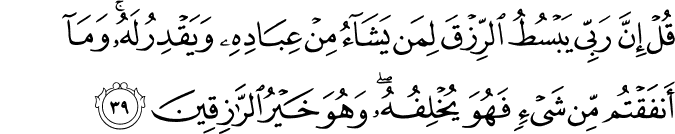 قُلۡ إِنَّ رَبِّي يَبۡسُطُ ٱلرِّزۡقَ لِمَن يَشَآءُ مِنۡ عِبَادِهِۦ وَيَقۡدِرُ لَهُۥۚ وَمَآ
أَنفَقۡتُم مِّن شَيۡءٖ فَهُوَ يُخۡلِفُهُۥۖ وَهُوَ خَيۡرُ ٱلرَّٰزِقِينَ ٣٩